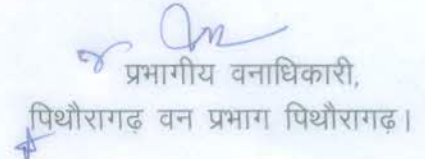 प्रभागीय वनाधिकारी,
पिथौरागढ़ वन प्रभाग पिथौरागढ़।